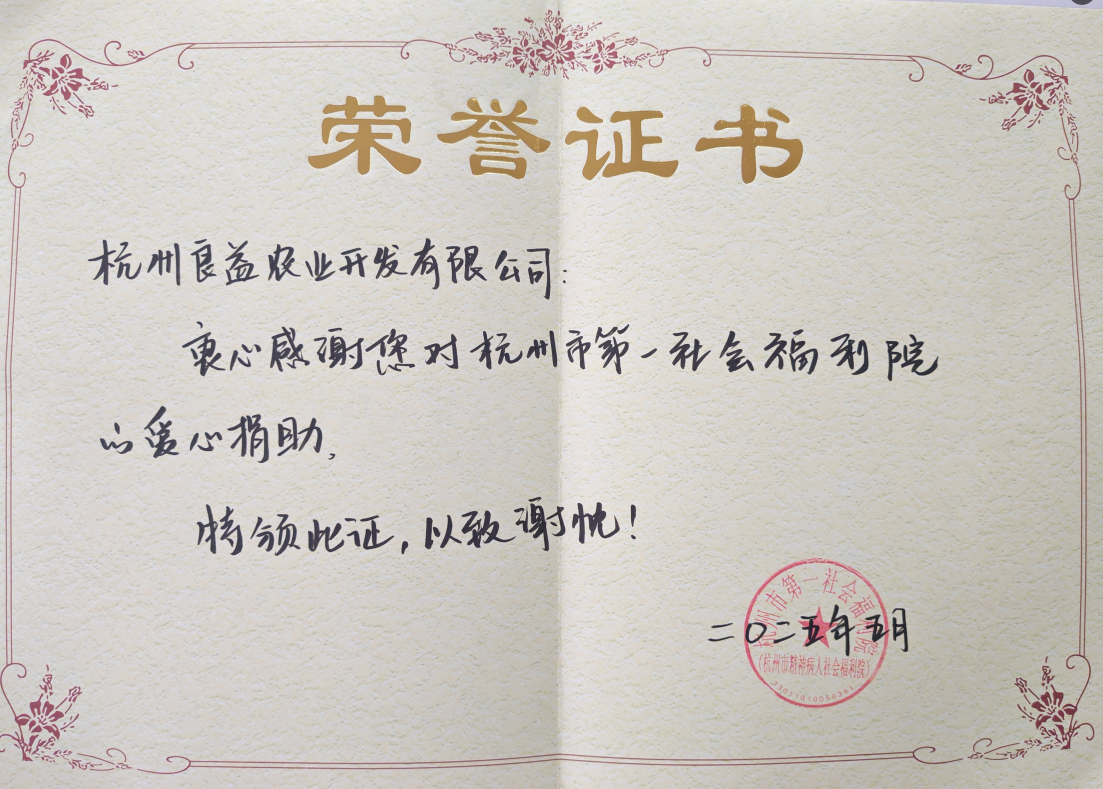 荣誉证书
杭州良益农业开发有限公司:
衷心感谢您对杭州市第一社会福利院
的爱心捐助,
特颁此证,以致谢忱!
杭州市第一社会福利院
二〇二五年五月
(杭州市精神病人社会福利院)